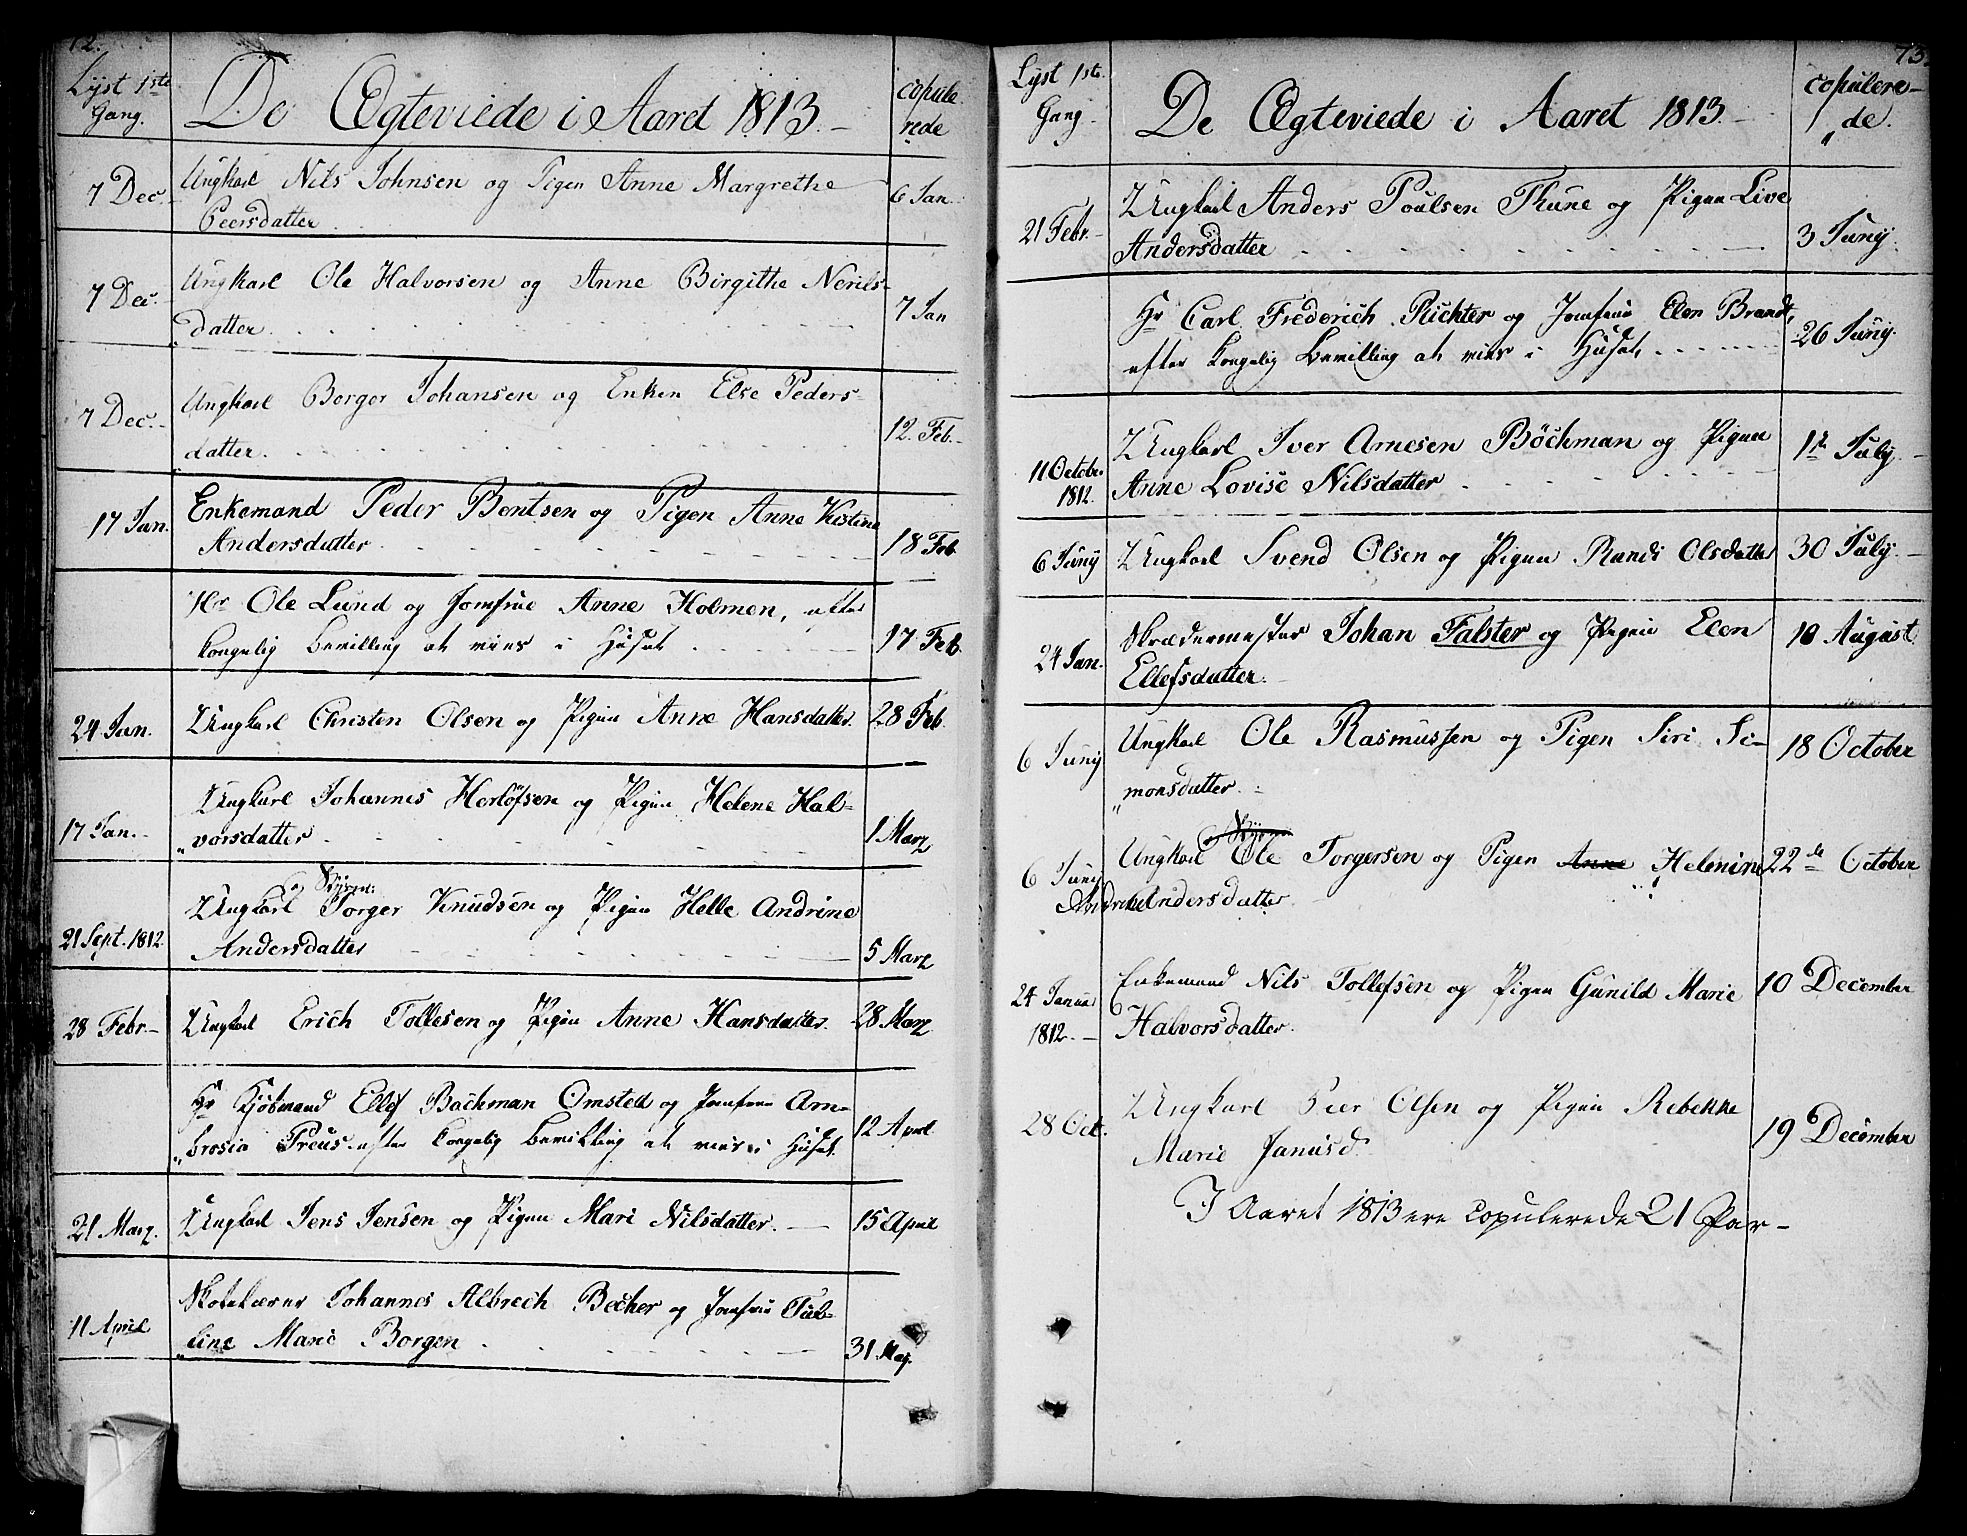 72.
Lyst 1ste
Gang.
De Ægteviede i Aaret 1813.
copule-
rede
7 Dec.
Ungkarl Nils Johnsen og Pigen Anne Margrethe
Peersdatter
6 Jan.
7 Dec.
Ungkarl Ole Halvorsen og Anne Birgithe Nerils-
datter
7 Jan
7 Dec.
Ungkarl Borger Johansen og Enken Else Peders-
datter.
12. Feb.
17 Jan.
Enkemand Peder Bentsen og Pigen Anne Kistina
Andersdatter
18 Feb
Hr Ole Lund og Jomfrue Anne Holmen, efter
kongelig Bevilling at vies i Huset
17 Feb.
24 Jan.
Ungkarl Christen Olsen og Pigen Anne Hansdatter.
28 Feb.
17 Jan.
Ungkarl Johannes Herlofsen og Pigen Helene Hal-
vorsdatter
1 Marz
21 Sept. 1812.
Ungkarl Torger Knudsen og Pigen Helle Andrine
Andersdatter
5 Marz
28 Febr.
Ungkarl Erich Tollesen og Pigen Anne Hansdatter.
28 Marz
Hr Kjøbmand Ellef Bachman Omsted og Jomfrue Am-
brosia Preus efter kongelig Bevilling at vies i Huset
12 April
21 Marz.
Ungkarl Jens Jensen og Pigen Mari Nilsdatter.
15 April
11 April
Johannes Albrech Becher og Jomfrue Tub-
line Marie Borgen
31 Maj.
73.
Lyst 1ste
Gang.
De Ægteviede i Aaret 1813.
copulere-
de.
21 Febr.
Ungkarl Anders Poulsen Thune og Pigen Live
Andersdatter
3 Junÿ.
Hr Carl Frederich Richter og Jomfrue Elen Brandt,
efter kongelig Bevilling at vies i Huset
26 Junÿ.
11 October
1812.
Ungkarl Iver Arnesen Böchman og Pigen
Anne Lovise Nilsdatter
1te Julÿ
6 Junÿ
Ungkarl Svend Olsen og Pigen Randi Olsdatter
30 Julÿ.
24 Jan.
Skrædermester Johan Falster og Pigen Elen
Ellefsdatter.
10 August
6 Junÿ
Ungkarl Ole Rasmussen og Pigen Siri Si-
monsdatter.
18 October
6 Junÿ
Ungkarl Ole Torgersen og Pigen Anne Helenine
Andersdatter
22de October
24 Januar
1812.
Enkemand Nils Tollefsen og Pigen Gunild Marie
Halvorsdatter.
10 December
28 Oct.
Ungkarl Peer Olsen og Pigen Rebekke
Marie Janusd.
19 December
I Aaret 1813 ere copulerede 21 Par